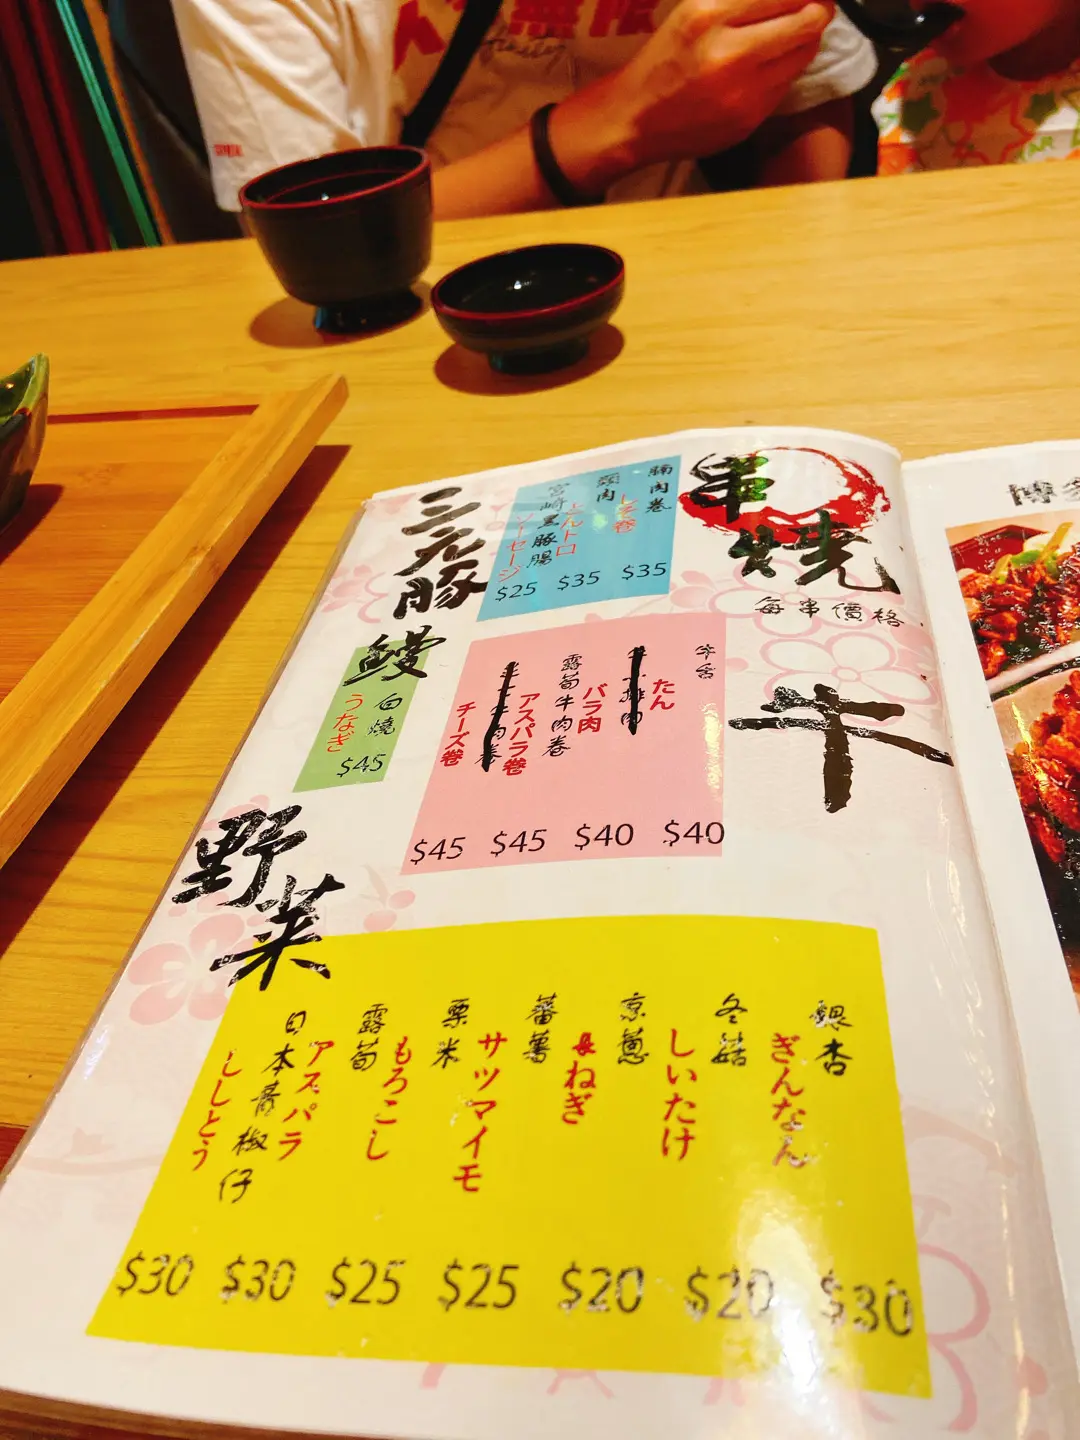 串燒
每串價格
腩肉卷
しそ卷
$35
頸肉
とんトロ
$35
宮崎黑豚腸
ソーセージ
$25
三元豚
牛
牛舌
たん
$40
排肉
バラ肉
$40
露荀牛肉卷
アスパラ卷
$45
肉卷
チーズ卷
$45
鰻
白燒
うなぎ
$45
野菜
銀杏
ぎんなん
$30
冬菇
しいたけ
$20
京蔥
ねぎ
$20
蕃薯
サツマイモ
$25
粟米
もろこし
$25
露荀
アスパラ
$30
日本青椒仔
ししとう
$30
博多
無限